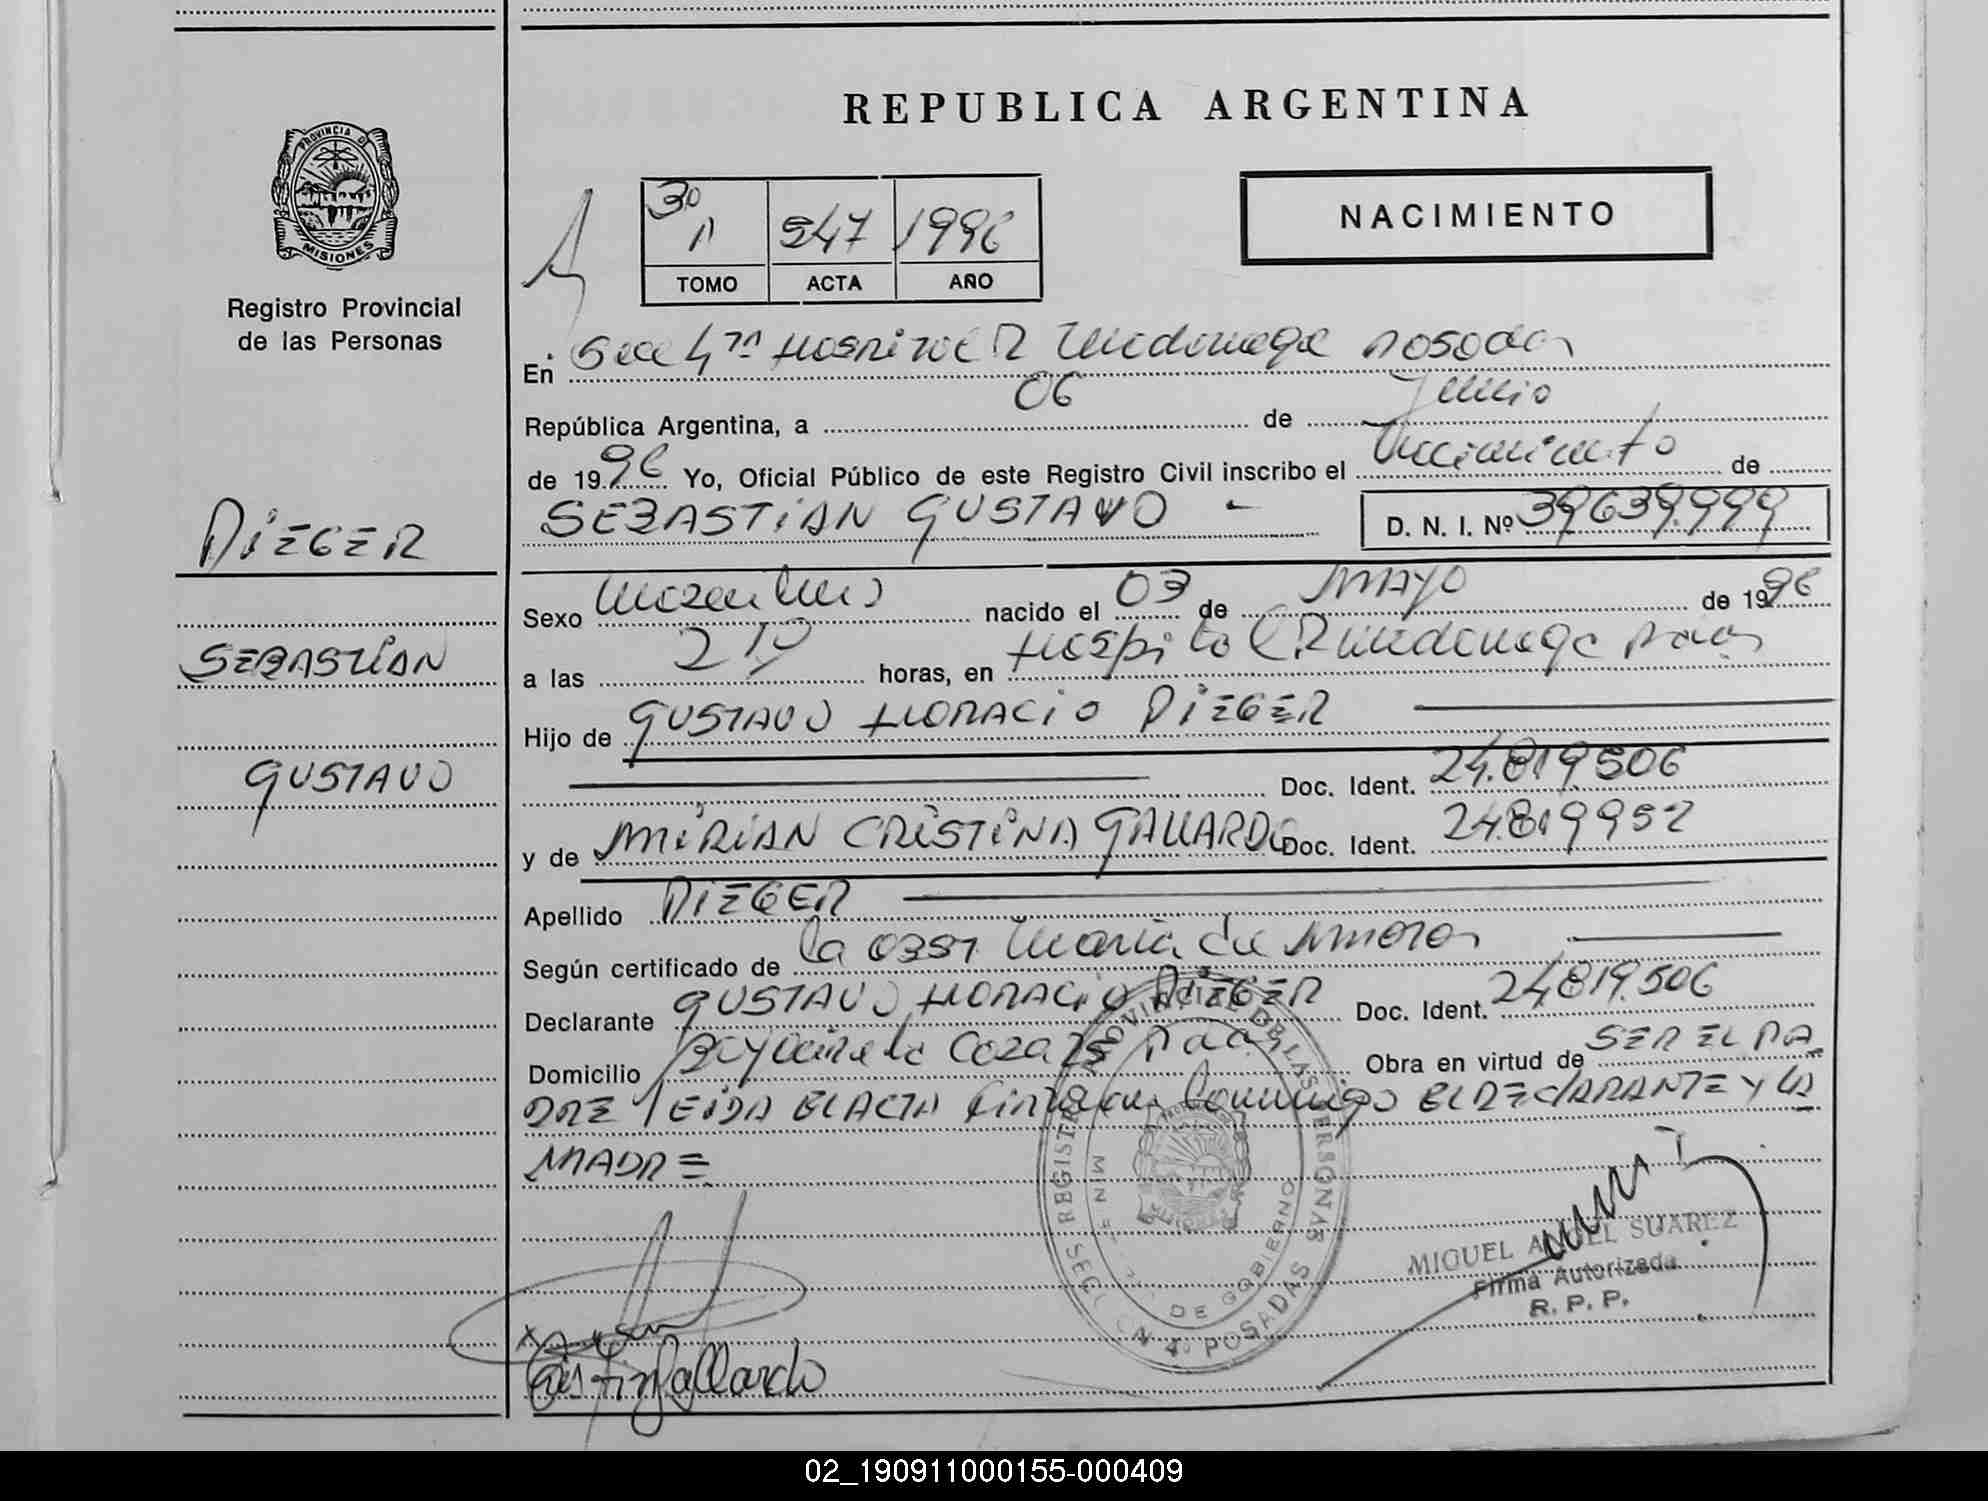 REPUBLICA ARGENTINA
PROVINCIA DE
MISIONES
Registro Provincial
de las Personas
3º
A 247 1996
TOMO ACTA AÑO
NACIMIENTO
En Secc 4ta Hospital R Madariaga Posadas
República Argentina, a 06 de Junio
de 1996 Yo, Oficial Público de este Registro Civil inscribo el Nacimiento de
SEBASTIAN GUSTAVO - D. N. I. Nº 39639.999
DIEGER
Sexo Masculino nacido el 03 de MAYO de 1996
SEBASTIAN
a las 2 10 horas, en Hospital R Madariaga Pdas
Hijo de GUSTAVO HORACIO DIEGER
GUSTAVO
Doc. Ident. 24.819.506
y de MIRIAN CRISTINA GALLARDO Doc. Ident. 24.819952
Apellido DIEGER
Según certificado de la OBST. Maria de
Declarante GUSTAVO HORACIO DIEGER Doc. Ident. 24819.506
Domicilio Casa Pdas Obra en virtud de SER EL PA
DRE LEIDA EL ACTA Firman Conmigo EL DECLARANTE Y LA
MADRE
REGISTRO PROVINCIAL DE LAS PERSONAS
DE GOBIERNO
SECCION 4º POSADAS
MIGUEL ANGEL SUAREZ
Firma Autorizada
R. P. P.
Cristina Gallardo
02_190911000155-000409